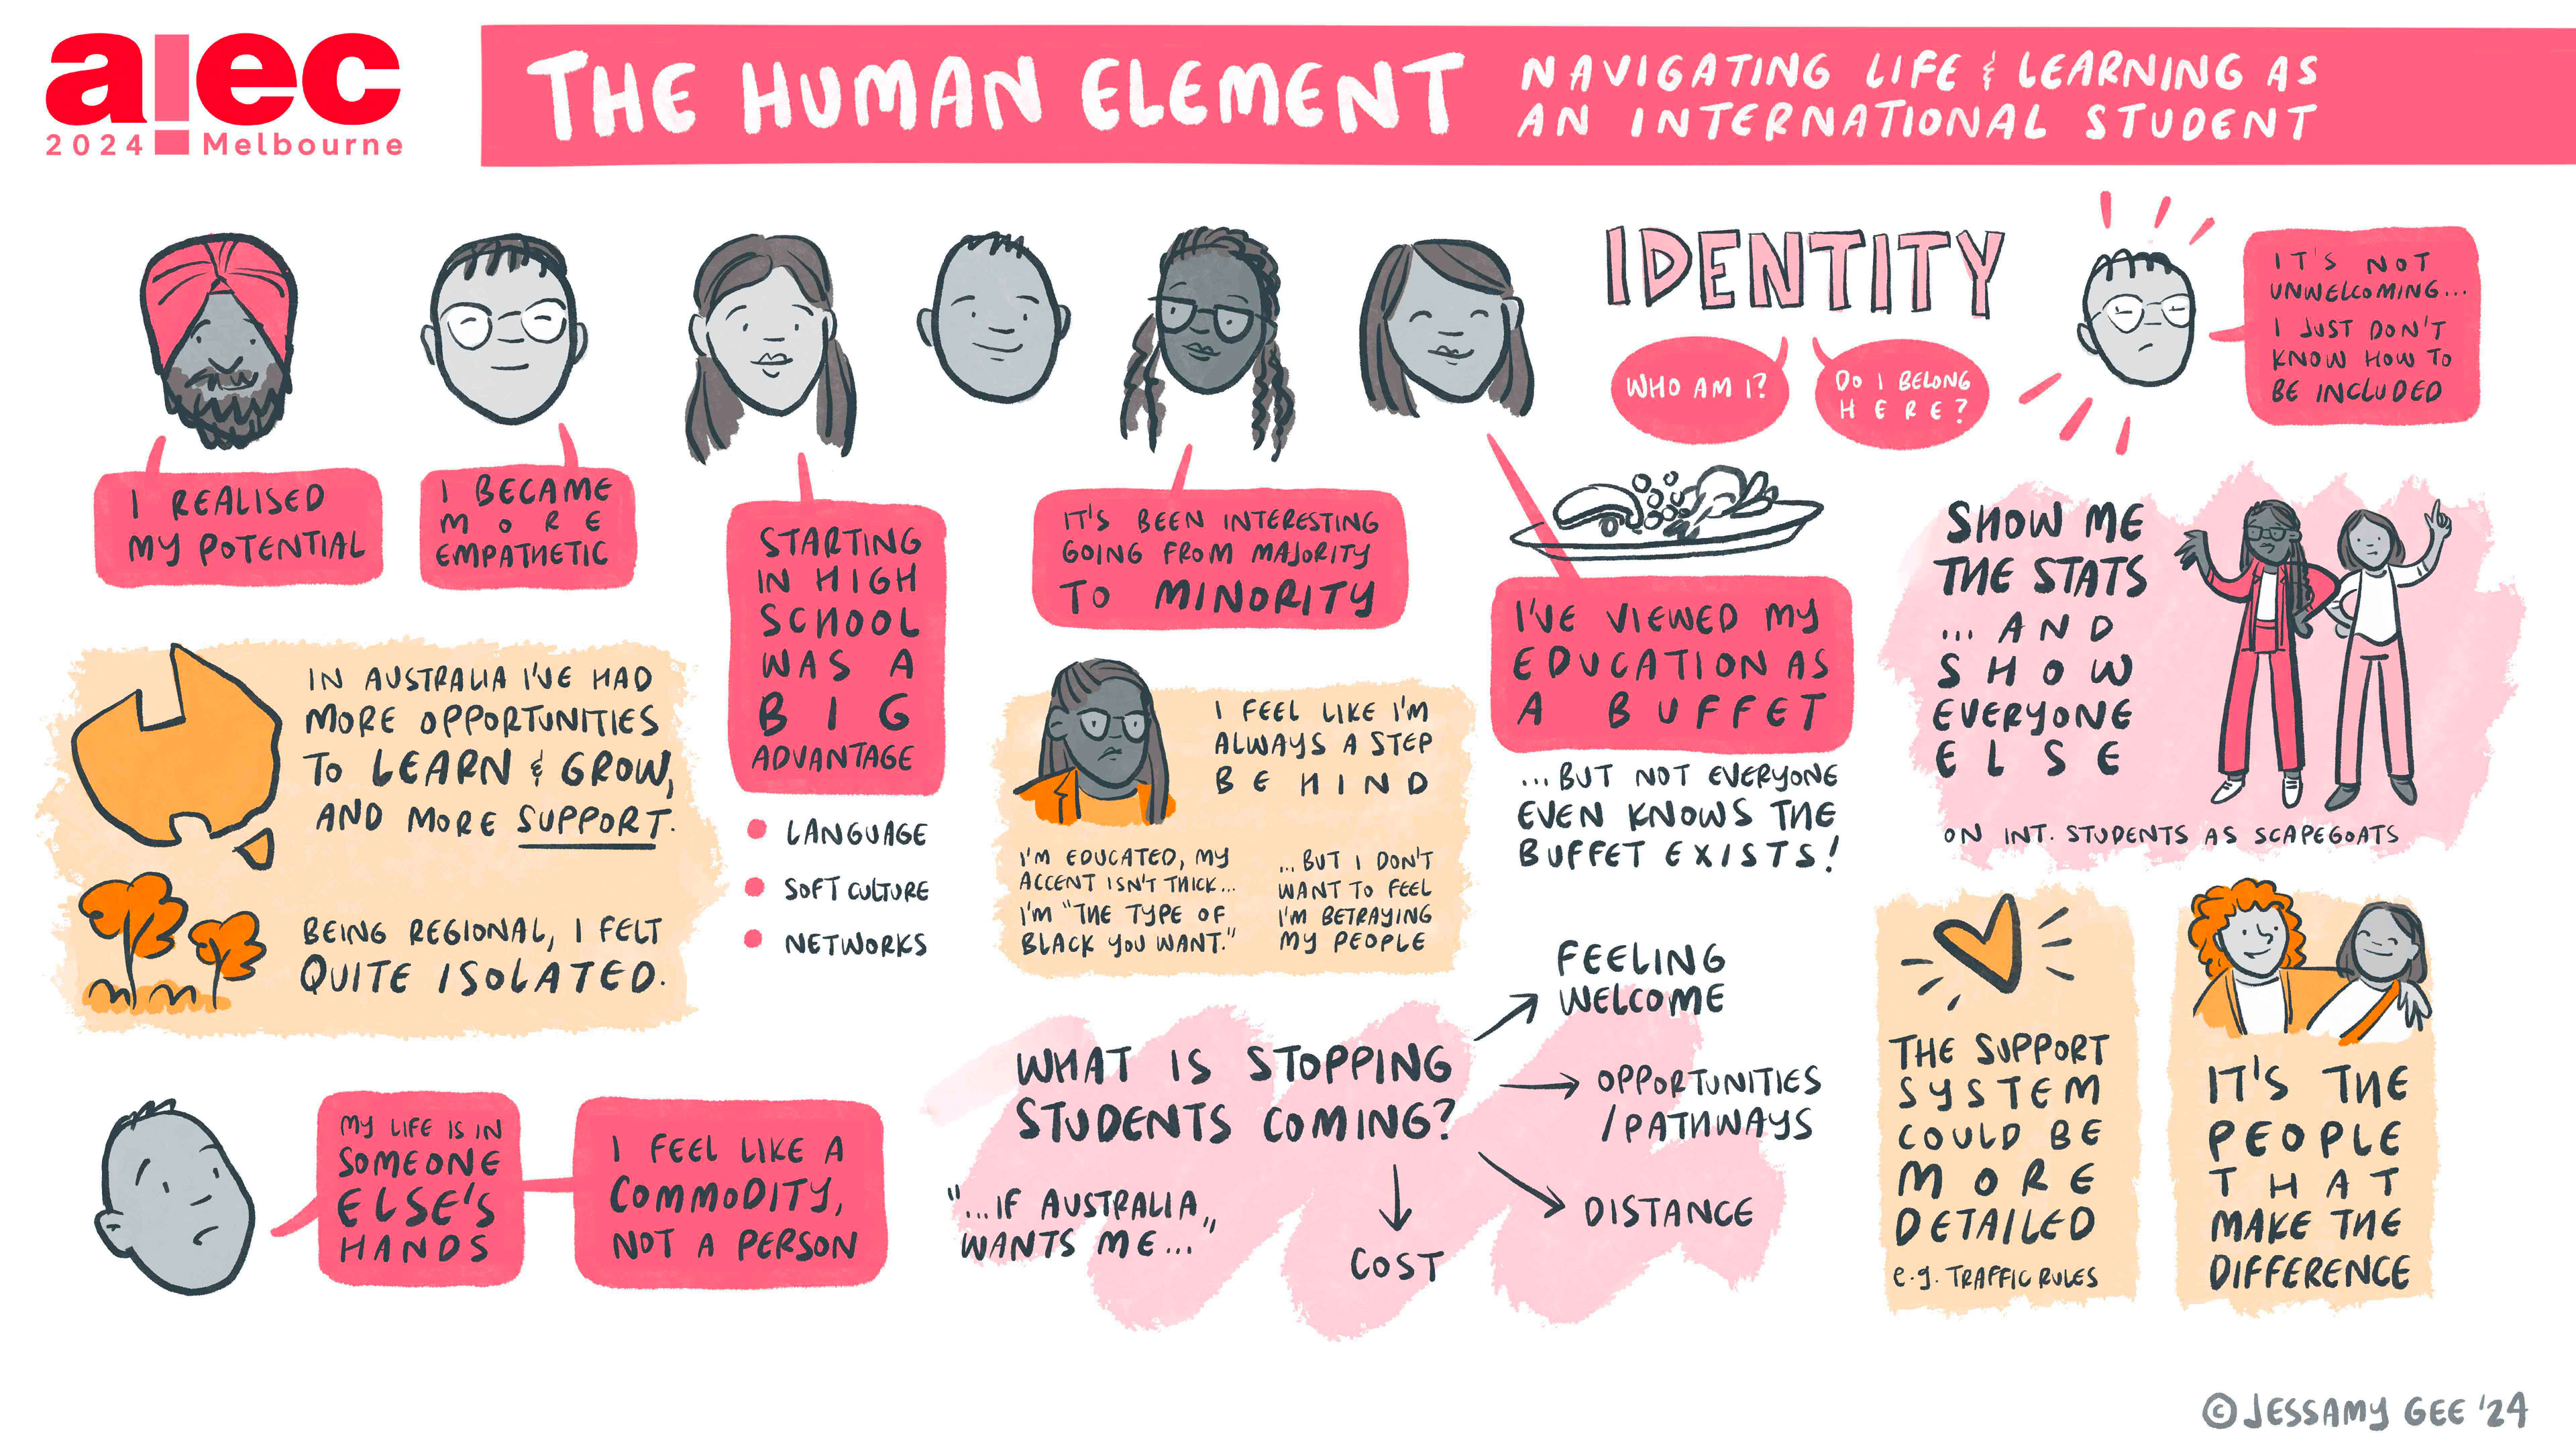 aiec
2024 Melbourne
THE HUMAN ELEMENT
NAVIGATING LIFE & LEARNING AS
AN INTERNATIONAL STUDENT
I REALISED
MY POTENTIAL
I BECAME
MORE
EMPATHETIC
STARTING
IN HIGH
SCHOOL
WAS A
BIG
ADVANTAGE
LANGUAGE
SOFT CULTURE
NETWORKS
IT'S BEEN INTERESTING
GOING FROM MAJORITY
TO MINORITY
I'VE VIEWED MY
EDUCATION AS
A BUFFET
...BUT NOT EVERYONE
EVEN KNOWS THE
BUFFET EXISTS!
IDENTITY
WHO AM I?
DO I BELONG
HERE?
IT'S NOT
UNWELCOMING...
I JUST DON'T
KNOW HOW TO
BE INCLUDED
SHOW ME
THE STATS
...AND
SHOW
EVERYONE
ELSE
ON INT. STUDENTS AS SCAPEGOATS
IN AUSTRALIA I'VE HAD
MORE OPPORTUNITIES
TO LEARN & GROW,
AND MORE SUPPORT.
BEING REGIONAL, I FELT
QUITE ISOLATED.
I FEEL LIKE I'M
ALWAYS A STEP
BEHIND
I'M EDUCATED, MY
ACCENT ISN'T THICK...
I'M "THE TYPE OF
BLACK YOU WANT."
...BUT I DON'T
WANT TO FEEL
I'M BETRAYING
MY PEOPLE
MY LIFE IS IN
SOMEONE
ELSE'S
HANDS
I FEEL LIKE A
COMMODITY,
NOT A PERSON
WHAT IS STOPPING
STUDENTS COMING?
"...IF AUSTRALIA
WANTS ME..."
FEELING
WELCOME
OPPORTUNITIES
/PATHWAYS
DISTANCE
COST
THE SUPPORT
SYSTEM
COULD BE
MORE
DETAILED
e.g. TRAFFIC RULES
IT'S THE
PEOPLE
THAT
MAKE THE
DIFFERENCE
© JESSAMY GEE '24